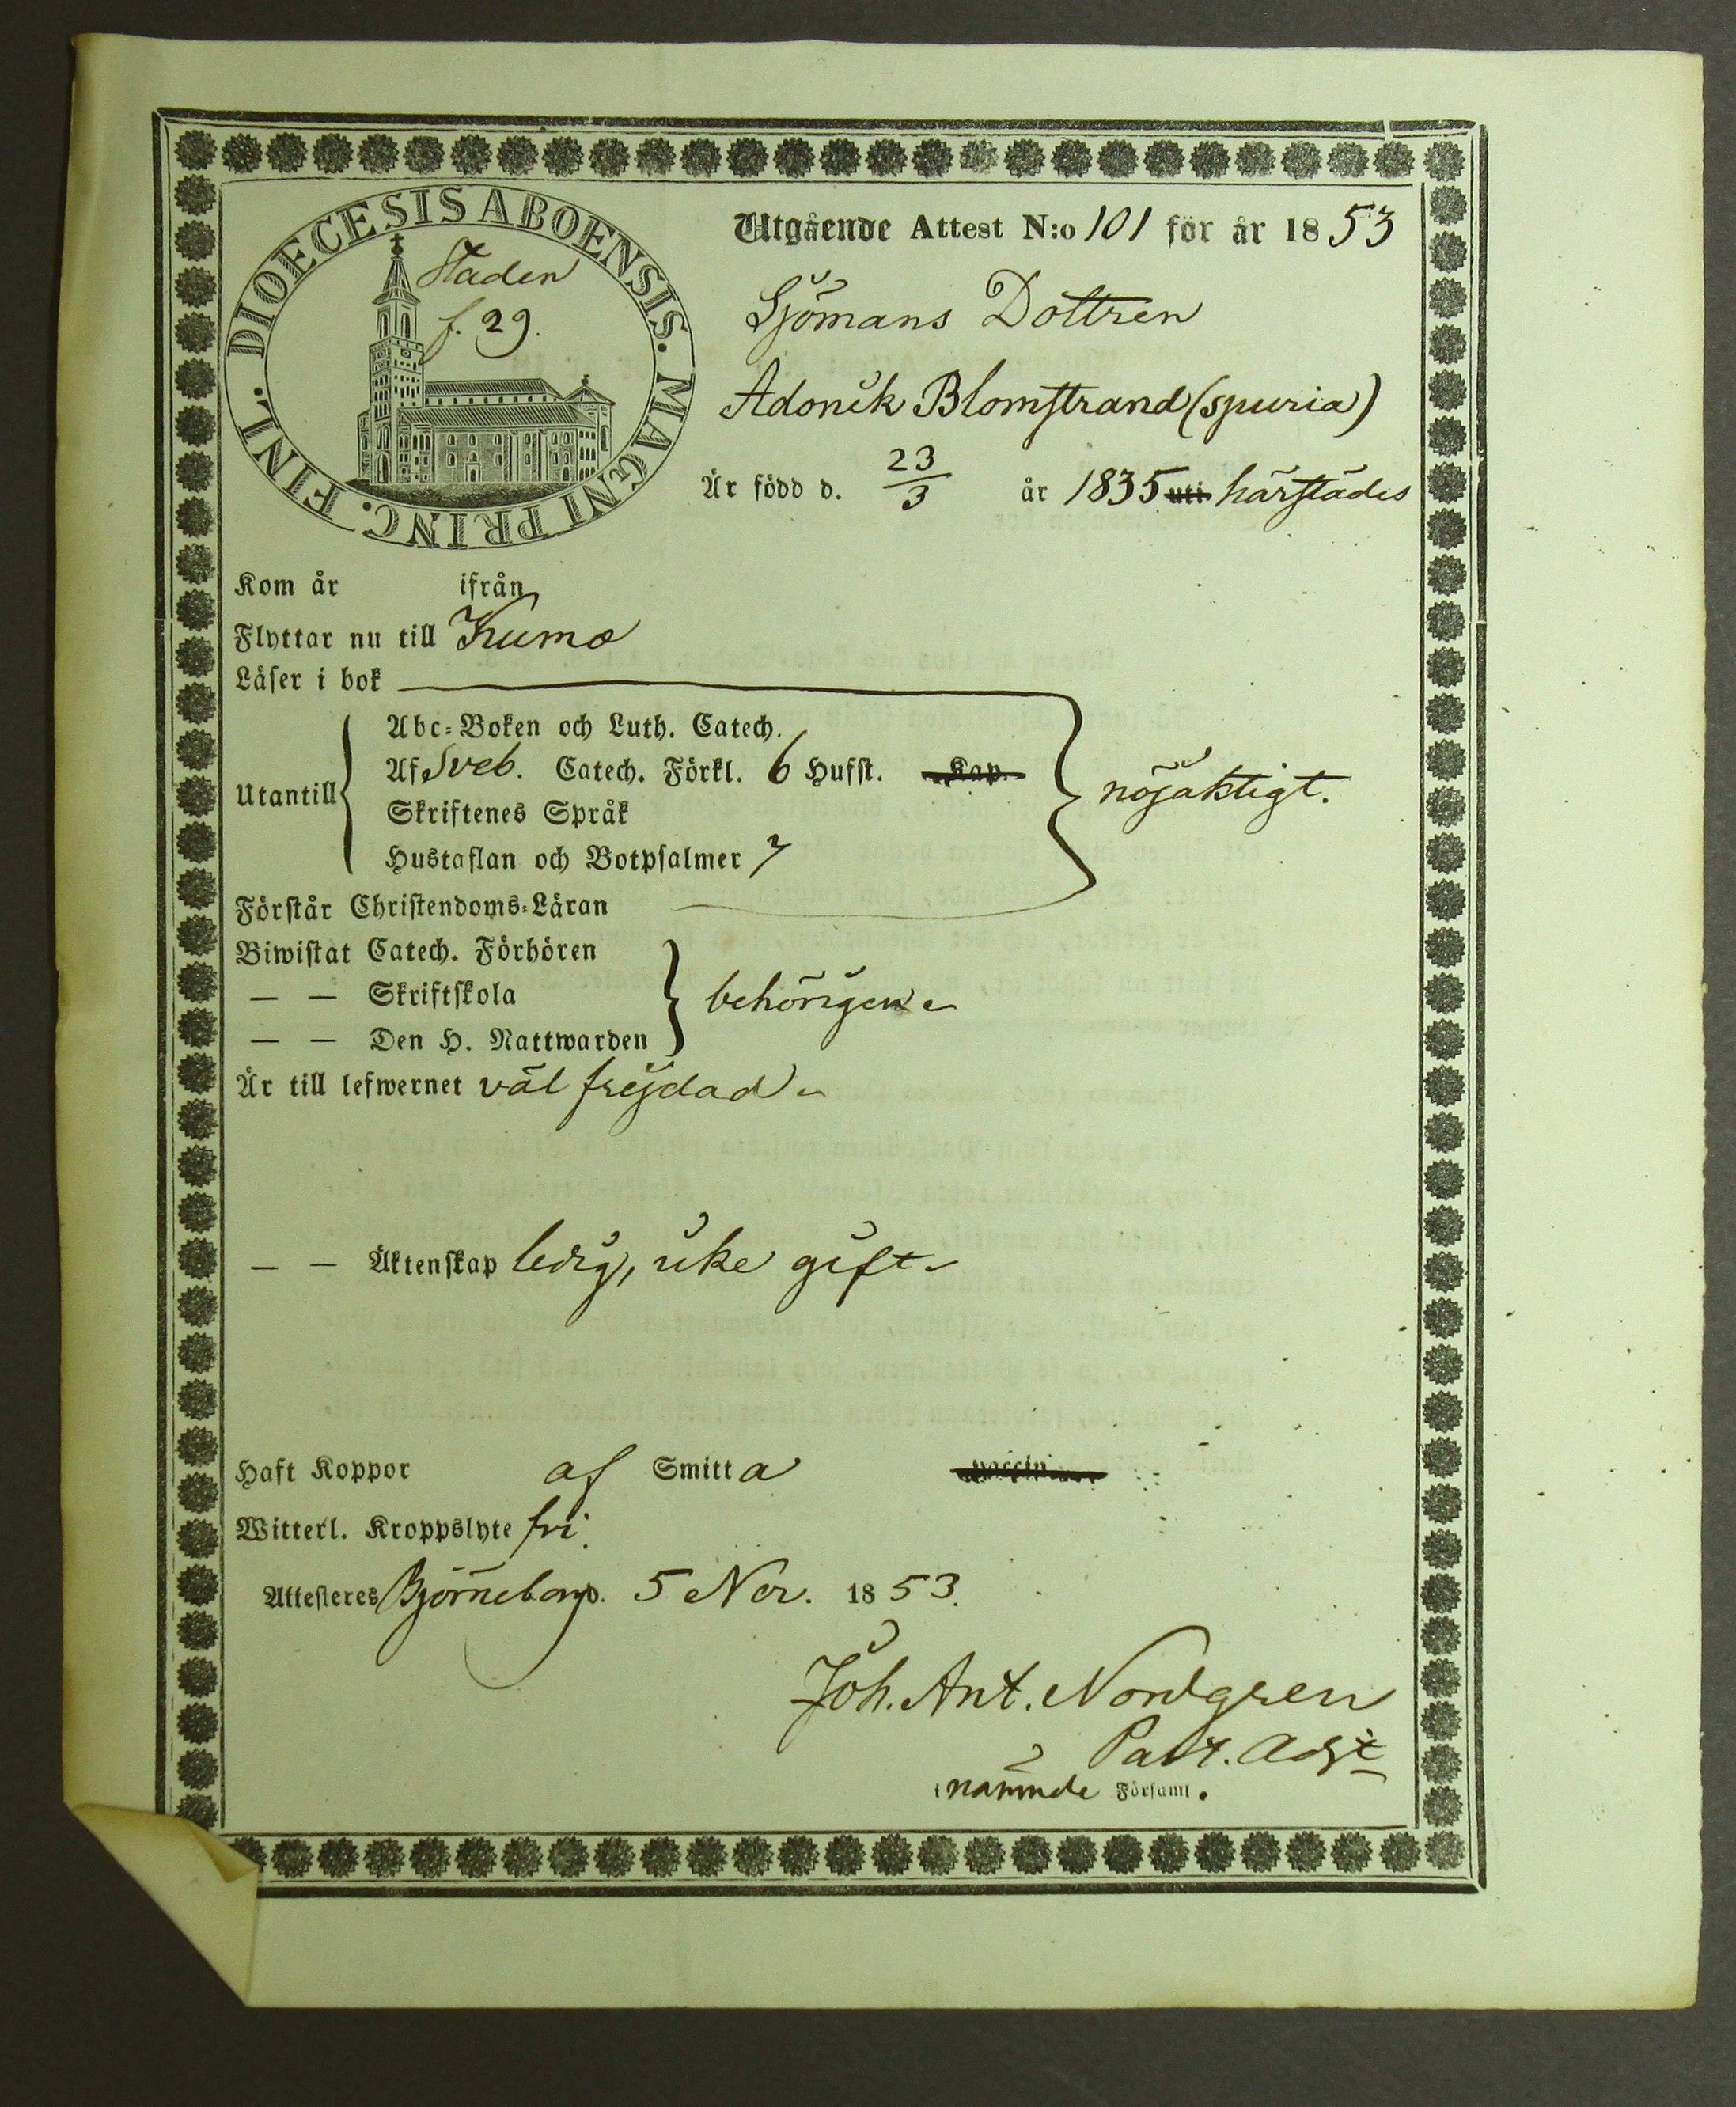 DIOECESIS ABOENSIS. MAGNI PRINC. FINL.
Staden
f. 29.
Utgående Attest N:o 101 för år 1853
Sjömans Dottren
Adonik Blomstrand (spuria)
Är född d. 23/3 år 1835 uti härstädes
Kom år ifrån
Flyttar nu till Kumo
Läser i bok
Utantill
Abc-Boken och Luth. Catech.
Af Sveb. Catech. Förkl. 6 Hufst. Kap.
Skriftenes Språk
Hustaflan och Botpsalmer 7
nöjaktigt.
Förstår Christendoms-Läran
Biwistat Catech. Förhören
— — Skriftskola
— — Den H. Nattwarden
behörigen
Är till lefwernet väl frejdad
— — Äktenskap ledig, icke gift
Haft Koppor af Smitta vaccin
Witterl. Kroppslyte fri.
Attesteres Björneborg d. 5 Nov. 1853.
Joh. Ant. Nordgren
Past. Adjt
i nämnde Församl.